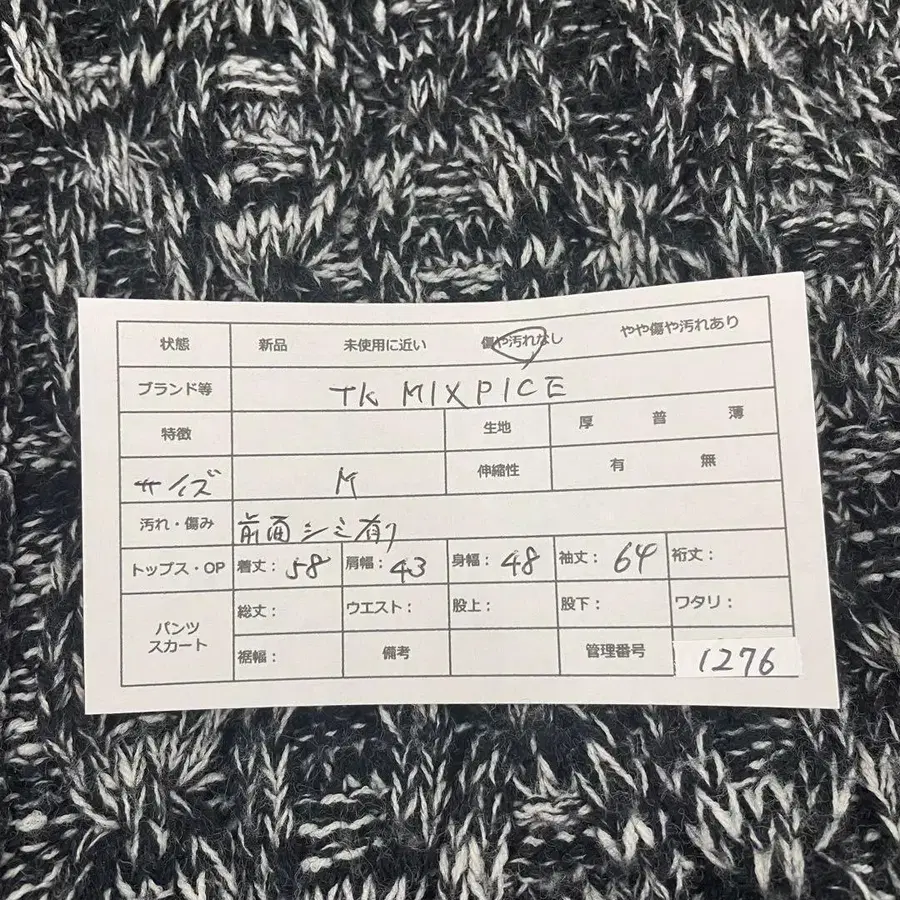 状態 新品 未使用に近い 傷や汚れなし やや傷や汚れあり
ブランド等 TK MIXPICE
特徴 生地 厚 普 薄
サイズ M 伸縮性 有 無
汚れ・傷み 前面シミ有り
トップス・OP 着丈：58 肩幅：43 身幅：48 袖丈：64 裄丈：
パンツ スカート 総丈： ウエスト： 股上： 股下： ワタリ：
裾幅： 備考 管理番号 1276